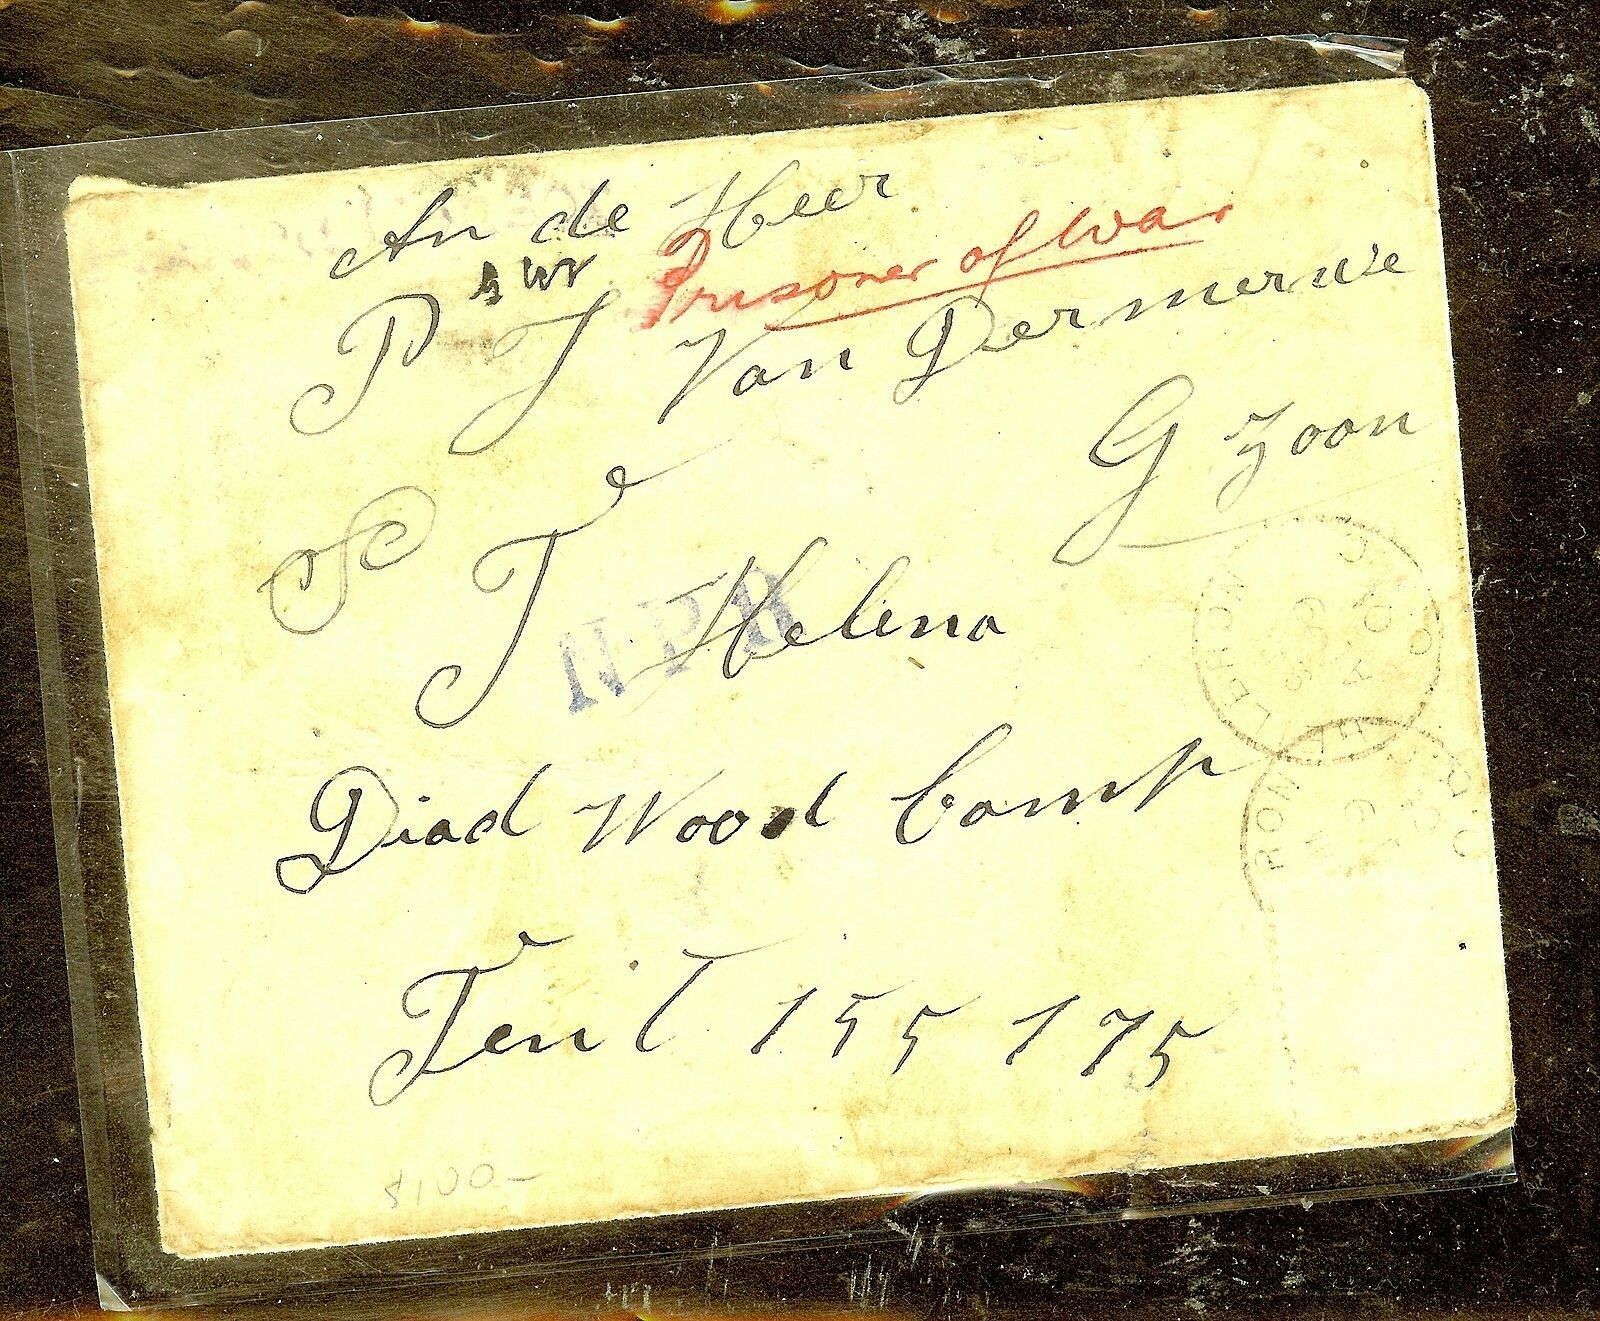 An de Heer
Prisoner of War
P J Van Dermerwe
G Zoon
St Helena
N.P.B
Diad Wood Camp
Tent 155 175
$100-